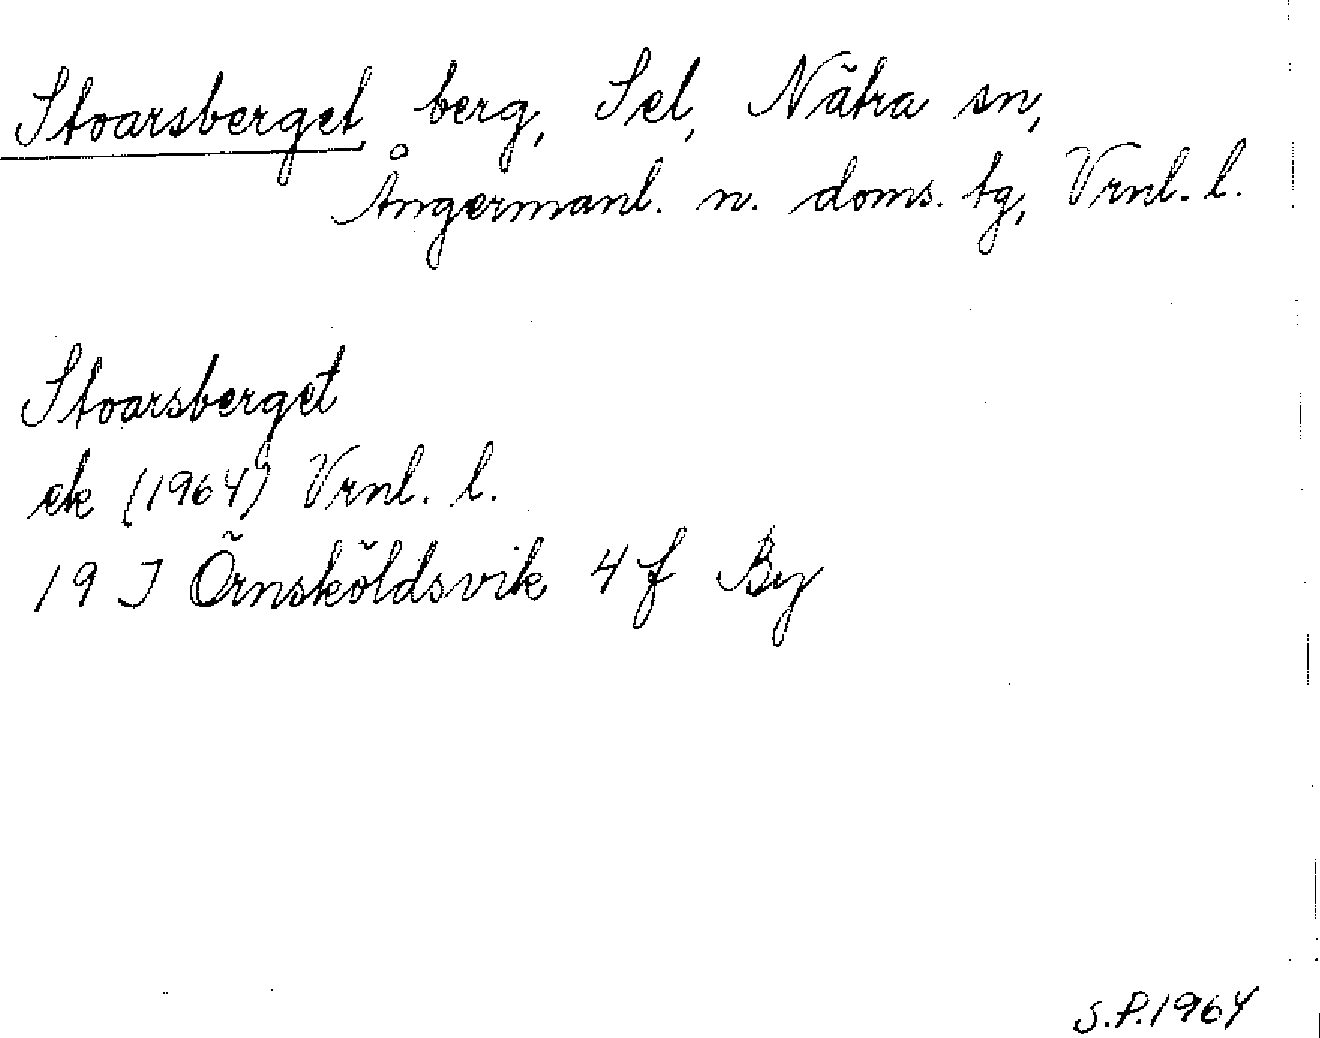 Stoarsberget berg, Sel, Nätra sn,
Ångermanl. n. doms. tg, Vrnl. l.
Stoarsberget
ek (1964) Vrnl. l.
19 J Örnsköldsvik 4 f By
S.P. 1964